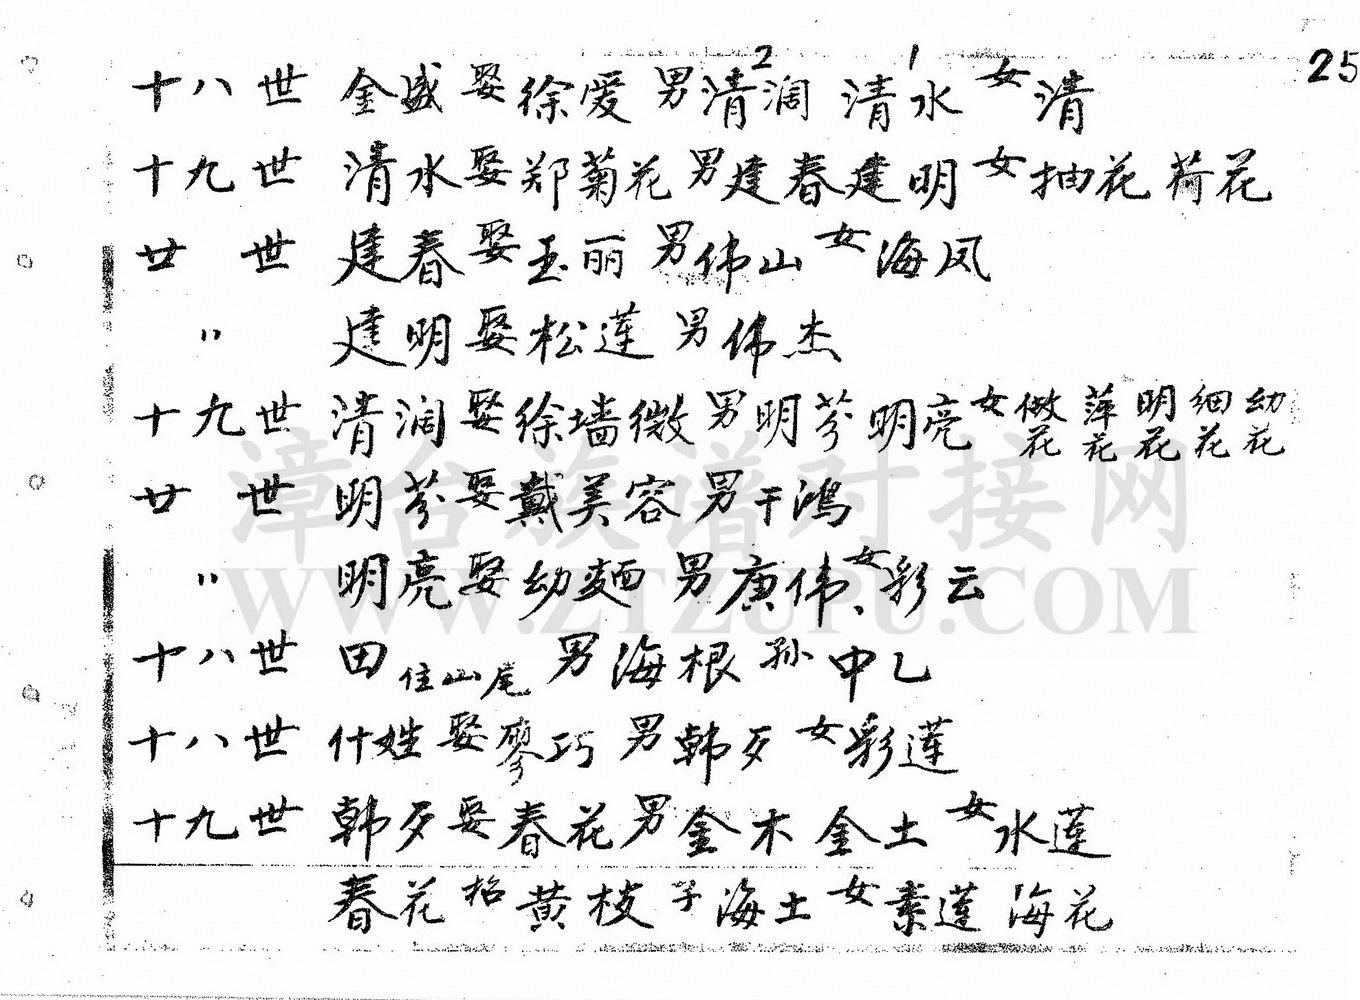 25
十八世 金盛 娶 徐爱 男 清阔2 清水1 女 清
十九世 清水 娶 郑菊花 男 建春 建明 女 抽花 荷花
廿世 建春 娶 玉丽 男 伟山 女 海凤
〃 建明 娶 松莲 男 伟杰
十九世 清阔 娶 徐墙微 男 明芬 明亮 女 做花 萍花 明花 细花 幼花
廿世 明芬 娶 戴美容 男 干鸿
〃 明亮 娶 幼 男 庚伟、女 彩云
十八世 田 住山尾 男 海根 孙 中乙
十八世 什姓 娶 廖巧 男 韩歹 女 彩莲
十九世 韩歹 娶 春花 男 金木 金土 女 水莲
春花 招 黄枝 子 海土 女 素莲 海花
漳台族谱对接网
WWW.ZTZUPU.COM